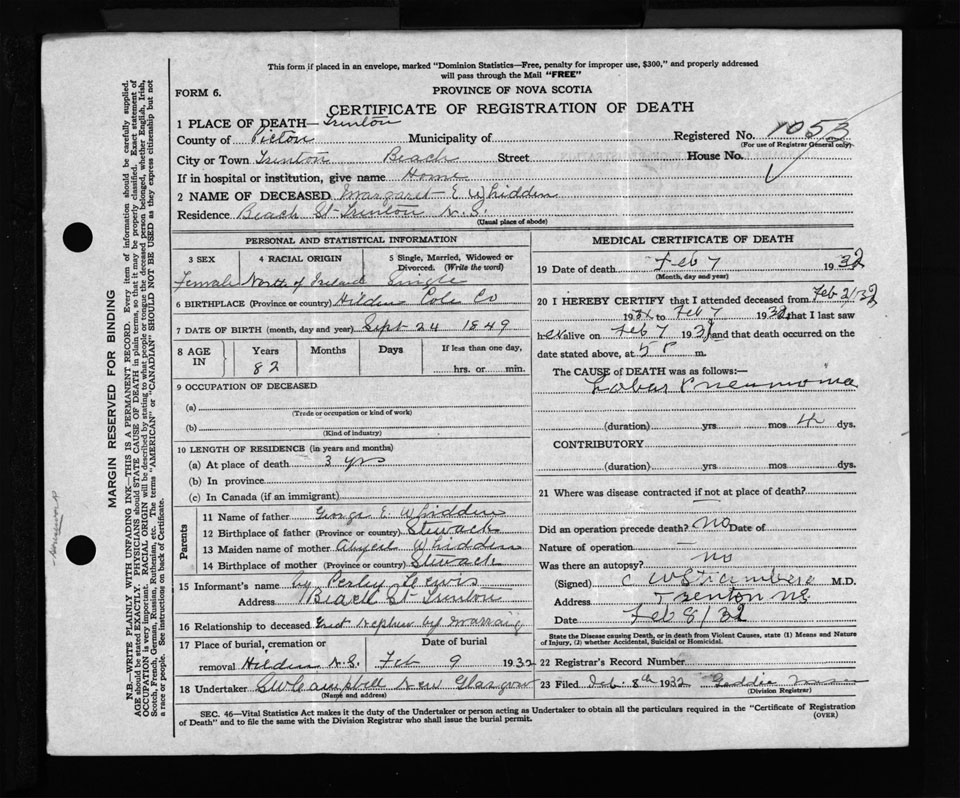 This form if placed in an envelope, marked "Dominion Statistics—Free, penalty for improper use, $300," and properly addressed
will pass through the Mail "FREE"
FORM 6.
PROVINCE OF NOVA SCOTIA
CERTIFICATE OF REGISTRATION OF DEATH
1 PLACE OF DEATH—Trenton
County of Pictou Municipality of Registered No. 1053
(For use of Registrar General only)
City or Town Trenton Beach Street House No.
If in hospital or institution, give name Home
2 NAME OF DECEASED Margaret E Whidden
Residence Beach St Trenton N.S.
(Usual place of abode)
PERSONAL AND STATISTICAL INFORMATION
3 SEX 4 RACIAL ORIGIN 5 Single, Married, Widowed or Divorced. (Write the word)
Female North of Ireland Single
6 BIRTHPLACE (Province or country) Hilden Col. Co
7 DATE OF BIRTH (month, day and year) Sept 24 1849
8 AGE IN Years Months Days If less than one day,
82 hrs. or min.
9 OCCUPATION OF DECEASED
(a)
(Trade or occupation or kind of work)
(b)
(Kind of industry)
10 LENGTH OF RESIDENCE (in years and months)
(a) At place of death 3 yrs
(b) In province
(c) In Canada (if an immigrant)
Parents
11 Name of father George E Whidden
12 Birthplace of father (Province or country) Stewack
13 Maiden name of mother Abigeal Whidden
14 Birthplace of mother (Province or country) Stewack
15 Informant's name by Perley Lewis
Address Beach St Trenton
16 Relationship to deceased Nephew by Marraing
17 Place of burial, cremation or Date of burial
removal Hilden N.S. Feb 9 1932
18 Undertaker G W Campbell New Glasgow
(Name and address)
MEDICAL CERTIFICATE OF DEATH
19 Date of death Feb 7 1932
(Month, day and year)
20 I HEREBY CERTIFY that I attended deceased from Feb 2/32
19 to Feb 7 1932, that I last saw
her alive on Feb 7 1932, and that death occurred on the
date stated above, at 5 P m.
The CAUSE of DEATH was as follows:—
Lobar Pneumonia
(duration) yrs mos 4 dys.
CONTRIBUTORY
(duration) yrs. mos. dys.
21 Where was disease contracted if not at place of death?
Did an operation precede death? No Date of
Nature of operation
Was there an autopsy? No
(Signed) M.D.
Address Trenton NS
Date Feb 8/32
State the Disease causing Death, or in death from Violent Causes, state (1) Means and Nature
of Injury, (2) whether Accidental, Suicidal or Homicidal.
22 Registrar's Record Number
23 Filed Feb. 8th 1932
(Division Registrar)
SEC. 46—Vital Statistics Act makes it the duty of the Undertaker or person acting as Undertaker to obtain all the particulars required in the "Certificate of Registration
of Death" and to file the same with the Division Registrar who shall issue the burial permit. (OVER)
MARGIN RESERVED FOR BINDING
N.B.—WRITE PLAINLY WITH UNFADING INK—THIS IS A PERMANENT RECORD. Every item of information should be carefully supplied.
AGE should be stated EXACTLY. PHYSICIANS should STATE CAUSE OF DEATH in plain terms, so that it may be properly classified. Exact statement of
OCCUPATION is very important. RACIAL ORIGIN will be described by stating to what people or tongue the deceased person belonged, whether English, Irish,
Scotch, French, German, Russian, Ruthenian, etc. The terms "AMERICAN" or "CANADIAN" SHOULD NOT BE USED as they express citizenship but not
a race or people. See instructions on back of Certificate.